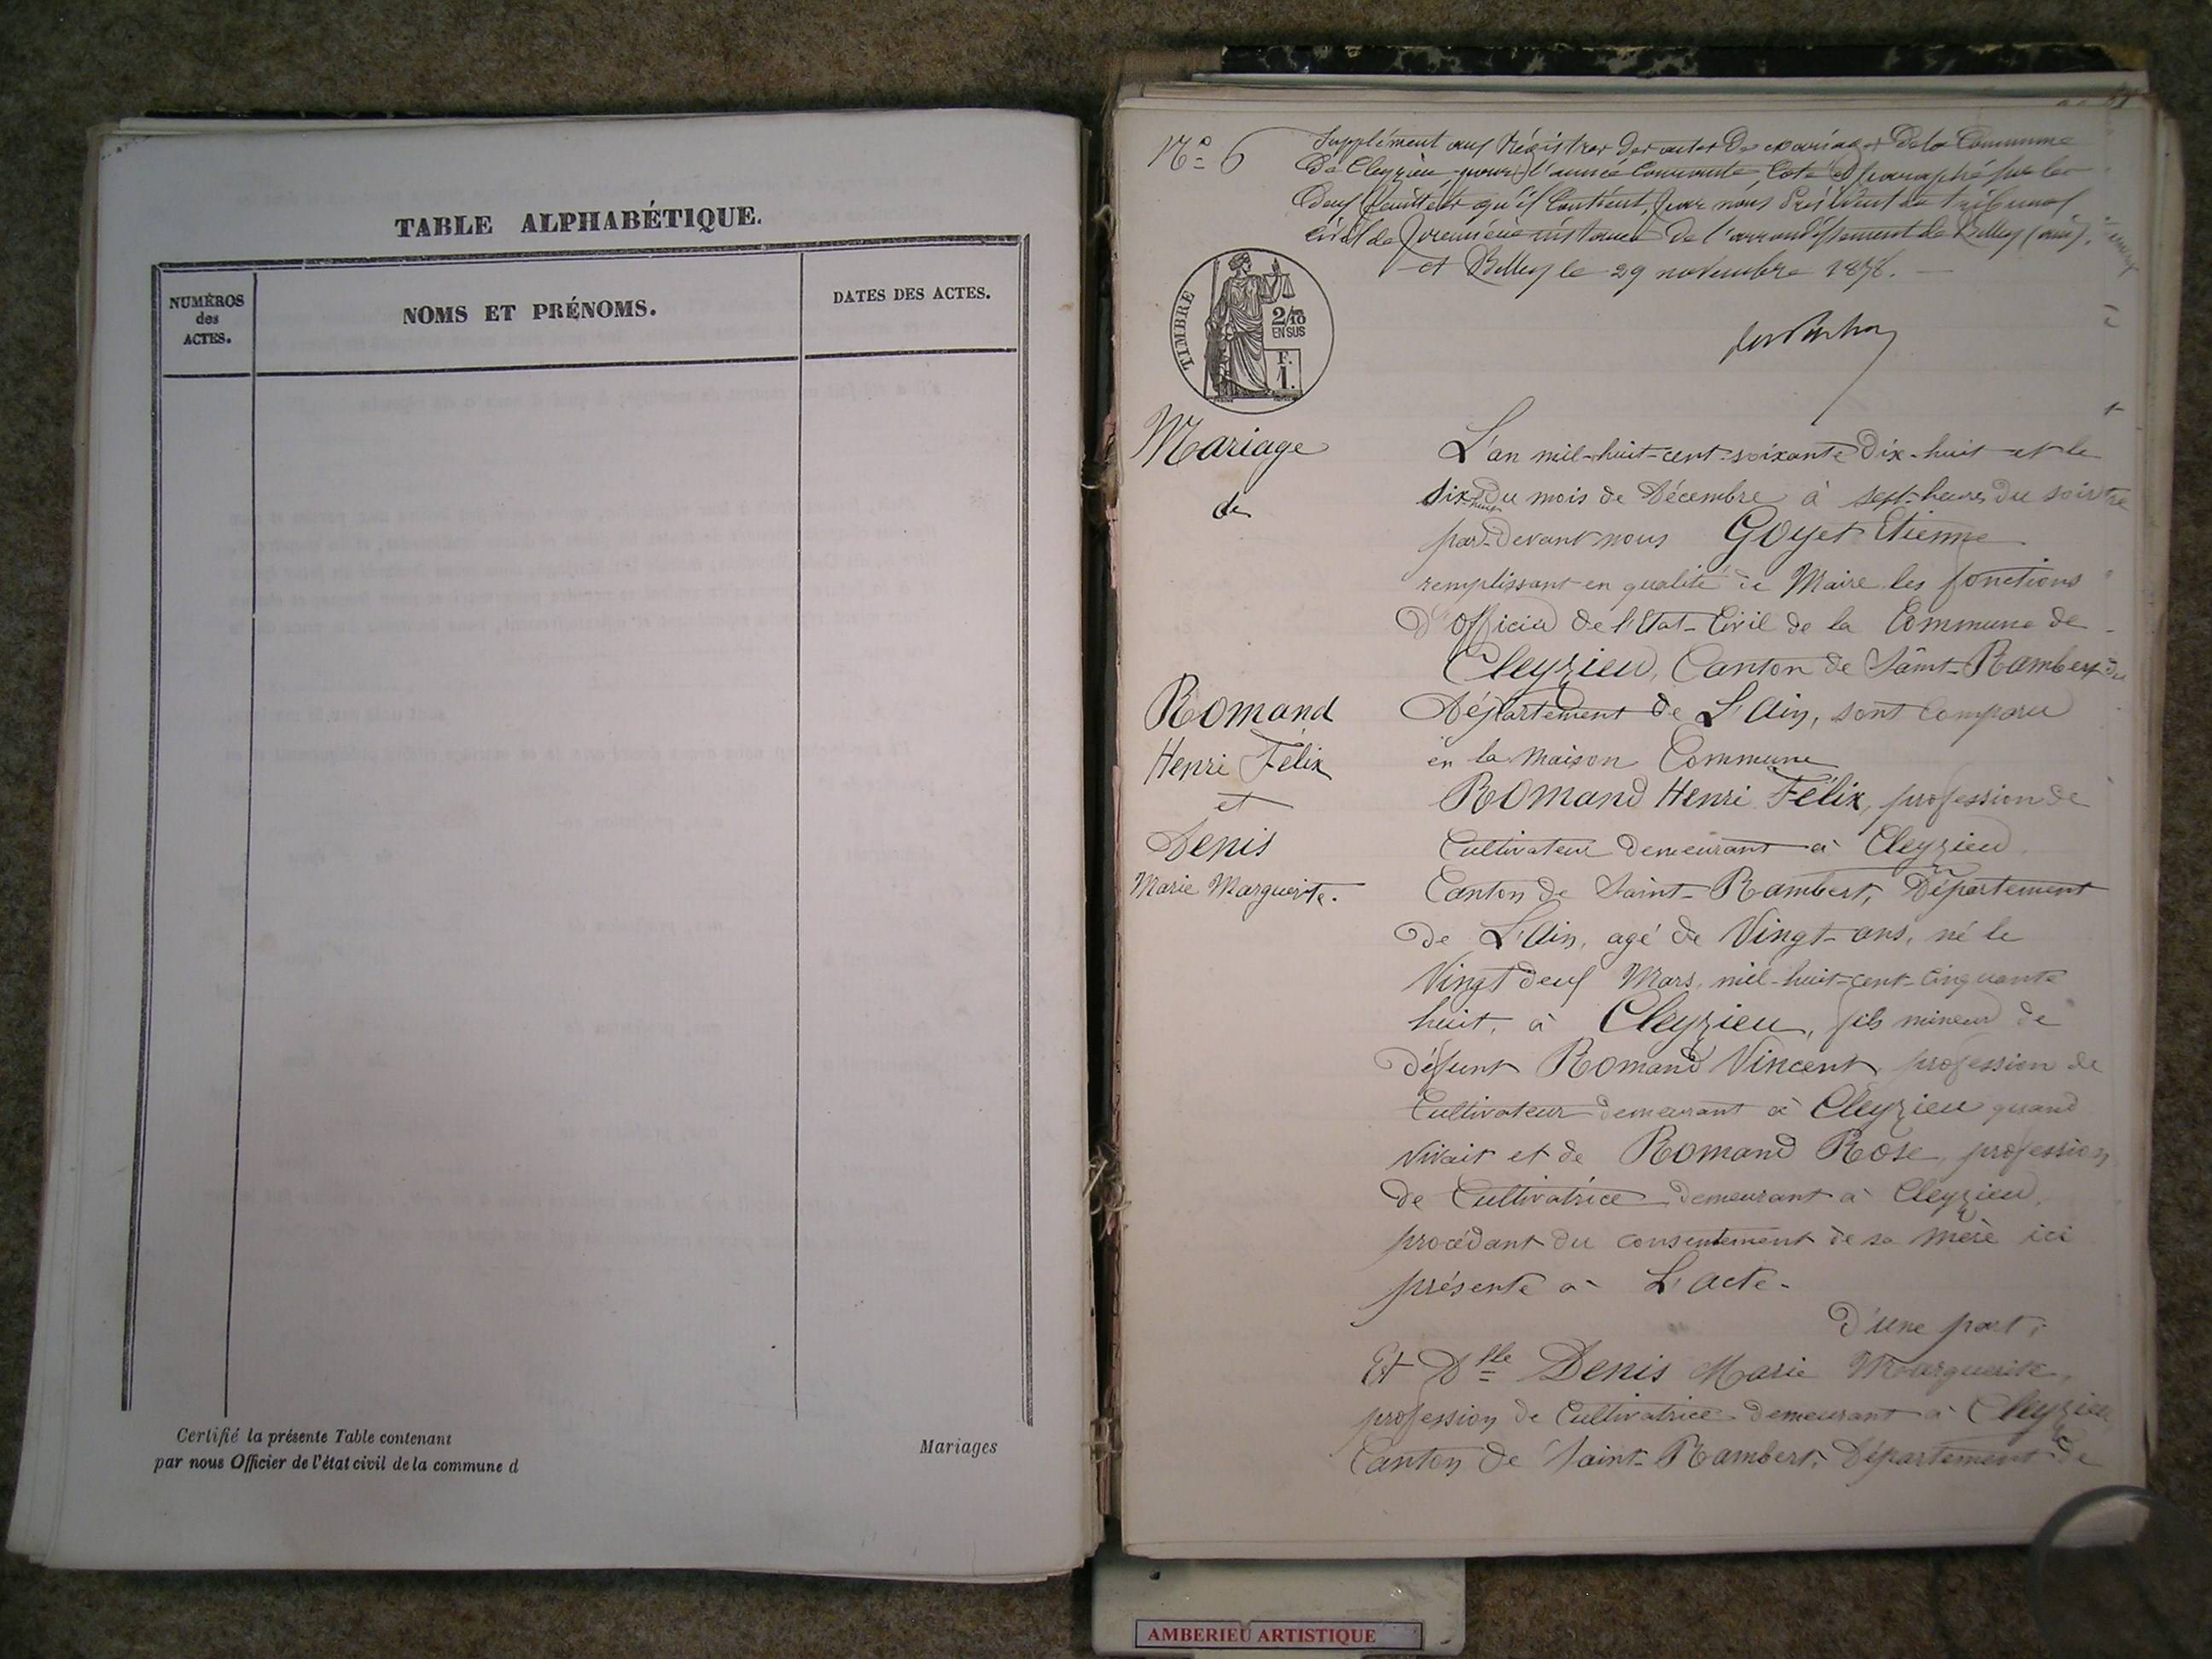 TABLE ALPHABÉTIQUE.
NUMÉROS
des
ACTES.
NOMS ET PRÉNOMS.
DATES DES ACTES.
Certifié la présente Table contenant
par nous Officier de l'état civil de la commune d
Mariages
N° 6
Supplément aux Régistres des actes de mariages de la Commune
de Cleyzieu, pour l'année Courante, Coté et paraphé sur les
deux feuillets qu'il Contient, par nous Président du tribunal
civil de première instance de l'arrondissement de Belley (ain).
Belley le 29 novembre 1878.
TIMBRE
2/10
EN SUS
F.
1.
Mariage
de
Romand
Henri Félix
et
Denis
Marie Marguerite.
L'an mil-huit-cent-soixante Dix-huit et le
dix-huit du mois de Décembre à sept-heures du soir
par-devant nous Goyet Etienne
remplissant en qualité de Maire les fonctions
D'officier de l'Etat-Civil de la Commune de
Cleyzieu, Canton de Saint-Rambert
Département de L'Ain, sont Comparu
en la Maison Commune
Romand Henri Félix, profession de
Cultivateur demeurant à Cleyzieu
Canton de Saint-Rambert, Département
de L'Ain, agé de Vingt-ans, né le
Vingt deux Mars, mil-huit-cent-cinquante
huit, à Cleyzieu, fils mineur de
défunt Romand Vincent, profession de
Cultivateur demeurant à Cleyzieu quand
vivait et de Romand Rose, profession
de Cultivatrice demeurant à Cleyzieu,
procédant du consentement de sa mère ici
présente à L'acte.
D'une part;
Et Dlle Denis Marie Marguerite,
profession de Cultivatrice demeurant à Cleyzieu
Canton de Saint-Rambert, Département de
AMBERIEU ARTISTIQUE